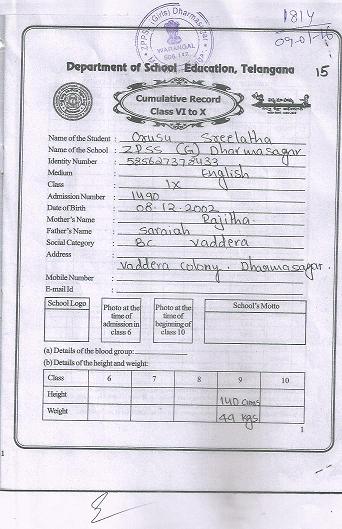 1814
09-01-16
ZPPSS (Girls) Dharmasagar
WARANGAL
506 142
Department of School Education, Telangana 15
Cumulative Record
Class VI to X
Name of the Student : Orusu Sreelatha
Name of the School : ZPSS (G) Dharmasagar
Identity Number : 585627378433
Medium : English
Class : IX
Admission Number : 1490
Date of Birth : 08-12-2002
Mother's Name : Rajitha.
Father's Name : Sarniah
Social Category : BC Vaddera
Address :
Vaddera Colony. Dharmasagar.
Mobile Number :
E-mail Id :
School Logo
Photo at the time of admission in class 6
Photo at the time of beginning of class 10
School's Motto
(a) Details of the blood group:
(b) Details of the height and weight:
Class 6 7 8 9 10
Height 140 cms
Weight 49 kgs
1
1